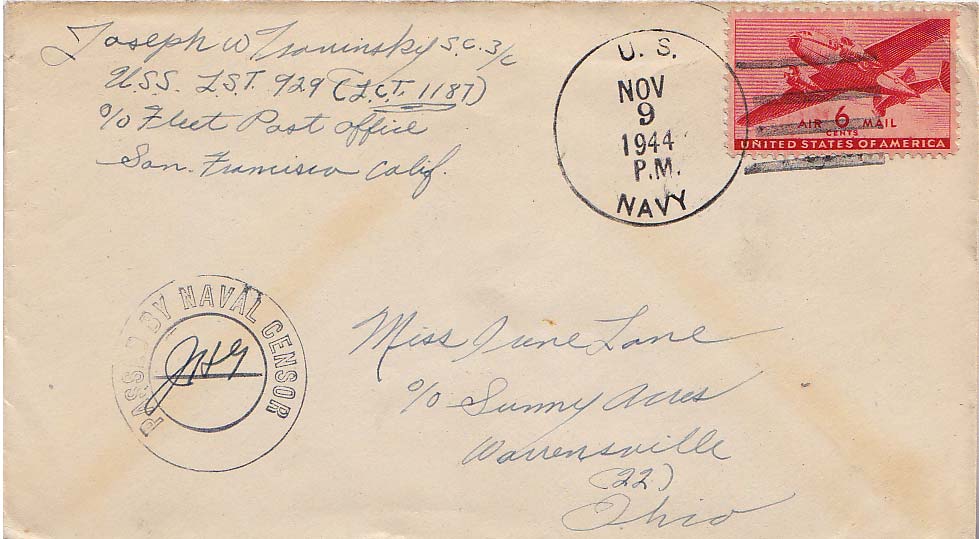 Joseph W Troninsky S.C. 3/c
U.S.S. L.S.T. 929 (L.C.T. 1187)
c/o Fleet Post Office
San. Francisco Calif.
U. S.
NOV
9
1944
P.M.
NAVY
AIR 6 MAIL
CENTS
UNITED STATES OF AMERICA
PASSED BY NAVAL CENSOR
JHG
Miss June Lane
c/o Sunny Acres
Warrensville
(22)
Ohio